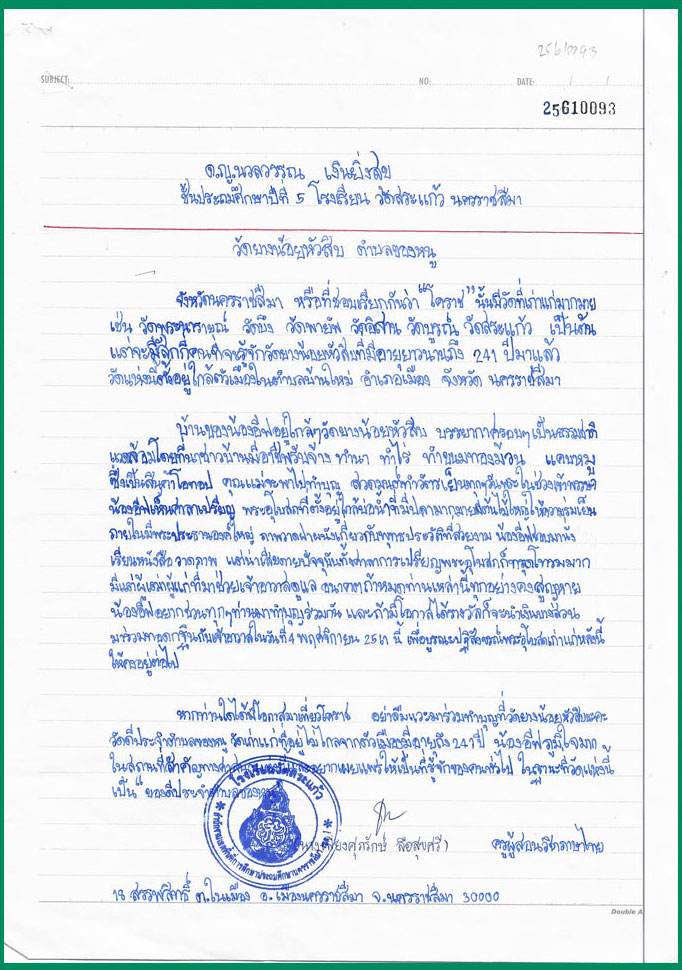 25610093
SUBJECT: NO: DATE: / /
25610093
ด.ญ.นวลวรรณ เงินยิ่งสุข
ชั้นประถมศึกษาปีที่ 5 โรงเรียน วัดสระแก้ว นครราชสีมา
วัดยางน้อยหัวสิบ ตำบลของหนู
จังหวัดนครราชสีมา หรือที่ชอบเรียกกันว่า "โคราช" นั้นมีวัดที่เก่าแก่มากมาย
เช่น วัดพระนารายณ์ วัดบึง วัดพายัพ วัดอิสาน วัดบูรณ์ วัดสระแก้ว เป็นต้น
แต่จะมีสักกี่คนที่จะรู้จักวัดยางน้อยหัวสิบที่มีอายุยาวนานถึง 241 ปีมาแล้ว
วัดแห่งนี้ตั้งอยู่ใกล้ตัวเมืองในตำบลบ้านใหม่ อำเภอเมือง จังหวัด นครราชสีมา
บ้านของน้องอีฟอยู่ใกล้ๆวัดยางน้อยหัวสิบ บรรยากาศรอบๆเป็นธรรมชาติ
แวดล้อมโดยที่นา ชาวบ้านมีอาชีพรับจ้าง ทำนา ทำไร่ ทำขนมทองม้วน แคบหมู
ซึ่งเป็นสินค้าโอทอป คุณแม่จะพาไปทำบุญ สวดมนต์ทำวัตรเย็นทุกวันพระในช่วงเข้าพรรษา
น้องอีฟเห็นศาลาเปรียญ พระอุโบสถที่ตั้งอยู่ใกล้บ่อน้ำที่มีปลามากมายมีต้นไม้ใหญ่ให้ความร่มเย็น
ภายในมีพระประธานองค์ใหญ่ ภาพวาดฝาผนังเกี่ยวกับพุทธประวัติที่สวยงาม น้องอีฟชอบมานั่ง
เรียนหนังสือ วาดภาพ แต่น่าเสียดายปัจจุบันทั้งศาลาการเปรียญพระอุโบสถก็ชำรุดโทรมมาก
มีแต่ผู้เฒ่าผู้แก่ที่มาช่วยเจ้าอาวาสดูแล อนาคตถ้าหมดท่านเหล่านี้ทุกอย่างคงสูญหาย
น้องอีฟอยากชวนทุกๆท่านมาทำบุญร่วมกัน และถ้ามีโอกาสได้รางวัลก็จะนำเงินบางส่วน
มาร่วมทอดกฐินกับเจ้าอาวาสในวันที่ 4 พฤศจิกายน 2561 นี้ เพื่อบูรณะปฏิสังขรณ์พระอุโบสถเก่าแก่หลังนี้
ให้คงอยู่ต่อไป
หากท่านใดได้มีโอกาสมาเที่ยวโคราช อย่าลืมแวะมาร่วมทำบุญที่วัดยางน้อยหัวสิบนะคะ
วัดดีประจำตำบลของหนู วัดเก่าแก่ที่อยู่ไม่ไกลจากตัวเมืองมีอายุถึง 241 ปี น้องอีฟภูมิใจมาก
ในสถานที่สำคัญทางศาสนา อยากเผยแพร่ให้เป็นที่รู้จักของคนทั่วไป ในฐานะที่วัดแห่งนี้
เป็น "ของดีประจำตำบลของหนู
โรงเรียนวัดสระแก้ว
ศุภรักษ์ ลือสุขศรี) ครูผู้สอนวิชาภาษาไทย
18 สรรพสิทธิ์ ต.ในเมือง อ.เมืองนครราชสีมา จ.นครราชสีมา 30000
Double A